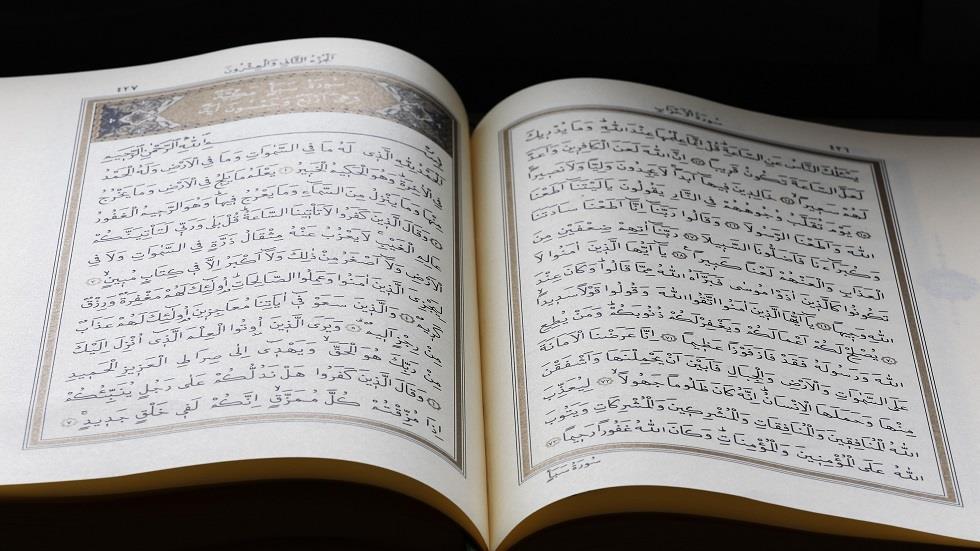 سُورَةُ الْاَحْزَابِ
٤٢٦
يَسْـَٔلُكَ النَّاسُ عَنِ السَّاعَةِ قُلْ اِنَّمَا عِلْمُهَا عِنْدَ اللّٰهِ وَمَا يُدْرِيكَ
لَعَلَّ السَّاعَةَ تَكُونُ قَرِيبًا ٦٣ اِنَّ اللّٰهَ لَعَنَ الْكَافِرِينَ وَاَعَدَّ
لَهُمْ سَعِيرًا ٦٤ خَالِدِينَ فِيهَٓا اَبَدًا لَا يَجِدُونَ وَلِيًّا وَلَا نَصِيرًا
٦٥ يَوْمَ تُقَلَّبُ وُجُوهُهُمْ فِي النَّارِ يَقُولُونَ يَا لَيْتَنَٓا اَطَعْنَا
اللّٰهَ وَاَطَعْنَا الرَّسُولَا ٦٦ وَقَالُوا رَبَّنَٓا اِنَّٓا اَطَعْنَا سَادَتَنَا
وَكُبَرَٓاءَنَا فَاَضَلُّونَا السَّبِيلَا ٦٧ رَبَّنَٓا اٰتِهِمْ ضِعْفَيْنِ مِنَ
الْعَذَابِ وَالْعَنْهُمْ لَعْنًا كَبِيرًا ٦٨ يَٓا اَيُّهَا الَّذِينَ اٰمَنُوا لَا
تَكُونُوا كَالَّذِينَ اٰذَوْا مُوسٰى فَبَرَّاَهُ اللّٰهُ مِمَّا قَالُوا وَكَانَ عِنْدَ
اللّٰهِ وَجِيهًا ٦٩ يَٓا اَيُّهَا الَّذِينَ اٰمَنُوا اتَّقُوا اللّٰهَ وَقُولُوا قَوْلًا سَدِيدًا
٧٠ يُصْلِحْ لَكُمْ اَعْمَالَكُمْ وَيَغْفِرْ لَكُمْ ذُنُوبَكُمْ وَمَنْ يُطِعِ
اللّٰهَ وَرَسُولَهُ فَقَدْ فَازَ فَوْزًا عَظِيمًا ٧١ اِنَّا عَرَضْنَا الْاَمَانَةَ
عَلَى السَّمٰوَاتِ وَالْاَرْضِ وَالْجِبَالِ فَاَبَيْنَ اَنْ يَحْمِلْنَهَا وَاَشْفَقْنَ
مِنْهَا وَحَمَلَهَا الْاِنْسَانُ اِنَّهُ كَانَ ظَلُومًا جَهُولًا ٧٢ لِيُعَذِّبَ
اللّٰهُ الْمُنَافِقِينَ وَالْمُنَافِقَاتِ وَالْمُشْرِكِينَ وَالْمُشْرِكَاتِ وَيَتُوبَ
اللّٰهُ عَلَى الْمُؤْمِنِينَ وَالْمُؤْمِنَاتِ وَكَانَ اللّٰهُ غَفُورًا رَحِيمًا ٧٣
سُورَةُ سَبَإٍ
اَلْجُزْءُ الثَّانِي وَالْعِشْرُونَ
٤٢٧
سُورَةُ سَبَإٍ مَكِّيَّةٌ
وَهِيَ اَرْبَعٌ وَخَمْسُونَ اٰيَةً
بِسْمِ اللّٰهِ الرَّحْمٰنِ الرَّحِيمِ
اَلْحَمْدُ لِلّٰهِ الَّذِي لَهُ مَا فِي السَّمٰوَاتِ وَمَا فِي الْاَرْضِ وَلَهُ الْحَمْدُ
فِي الْاٰخِرَةِ وَهُوَ الْحَكِيمُ الْخَبِيرُ ١ يَعْلَمُ مَا يَلِجُ فِي الْاَرْضِ وَمَا يَخْرُجُ
مِنْهَا وَمَا يَنْزِلُ مِنَ السَّمَٓاءِ وَمَا يَعْرُجُ فِيهَا وَهُوَ الرَّحِيمُ الْغَفُورُ
٢ وَقَالَ الَّذِينَ كَفَرُوا لَا تَأْتِينَا السَّاعَةُ قُلْ بَلٰى وَرَبِّي لَتَأْتِيَنَّكُمْ
عَالِمِ الْغَيْبِ لَا يَعْزُبُ عَنْهُ مِثْقَالُ ذَرَّةٍ فِي السَّمٰوَاتِ وَلَا فِي
الْاَرْضِ وَلَٓا اَصْغَرُ مِنْ ذٰلِكَ وَلَٓا اَكْبَرُ اِلَّا فِي كِتَابٍ مُبِينٍ ٣
لِيَجْزِيَ الَّذِينَ اٰمَنُوا وَعَمِلُوا الصَّالِحَاتِ اُولٰٓئِكَ لَهُمْ مَغْفِرَةٌ وَرِزْقٌ
كَرِيمٌ ٤ وَالَّذِينَ سَعَوْ فِٓي اٰيَاتِنَا مُعَاجِزِينَ اُولٰٓئِكَ لَهُمْ عَذَابٌ
مِنْ رِجْزٍ اَلِيمٌ ٥ وَيَرَى الَّذِينَ اُوتُوا الْعِلْمَ الَّذِٓي اُنْزِلَ اِلَيْكَ
مِنْ رَبِّكَ هُوَ الْحَقَّ وَيَهْدِٓي اِلٰى صِرَاطِ الْعَزِيزِ الْحَمِيدِ
٦ وَقَالَ الَّذِينَ كَفَرُوا هَلْ نَدُلُّكُمْ عَلٰى رَجُلٍ يُنَبِّئُكُمْ
اِذَا مُزِّقْتُمْ كُلَّ مُمَزَّقٍ اِنَّكُمْ لَفِي خَلْقٍ جَدِيدٍ ٧